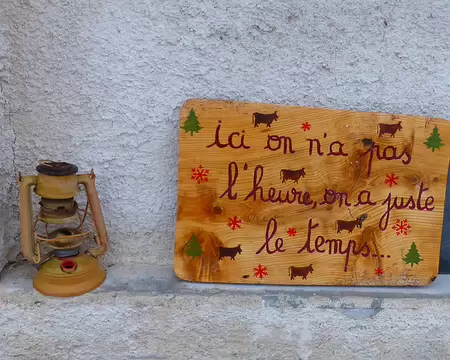 ici on n'a pas
l'heure, on a juste
le temps...